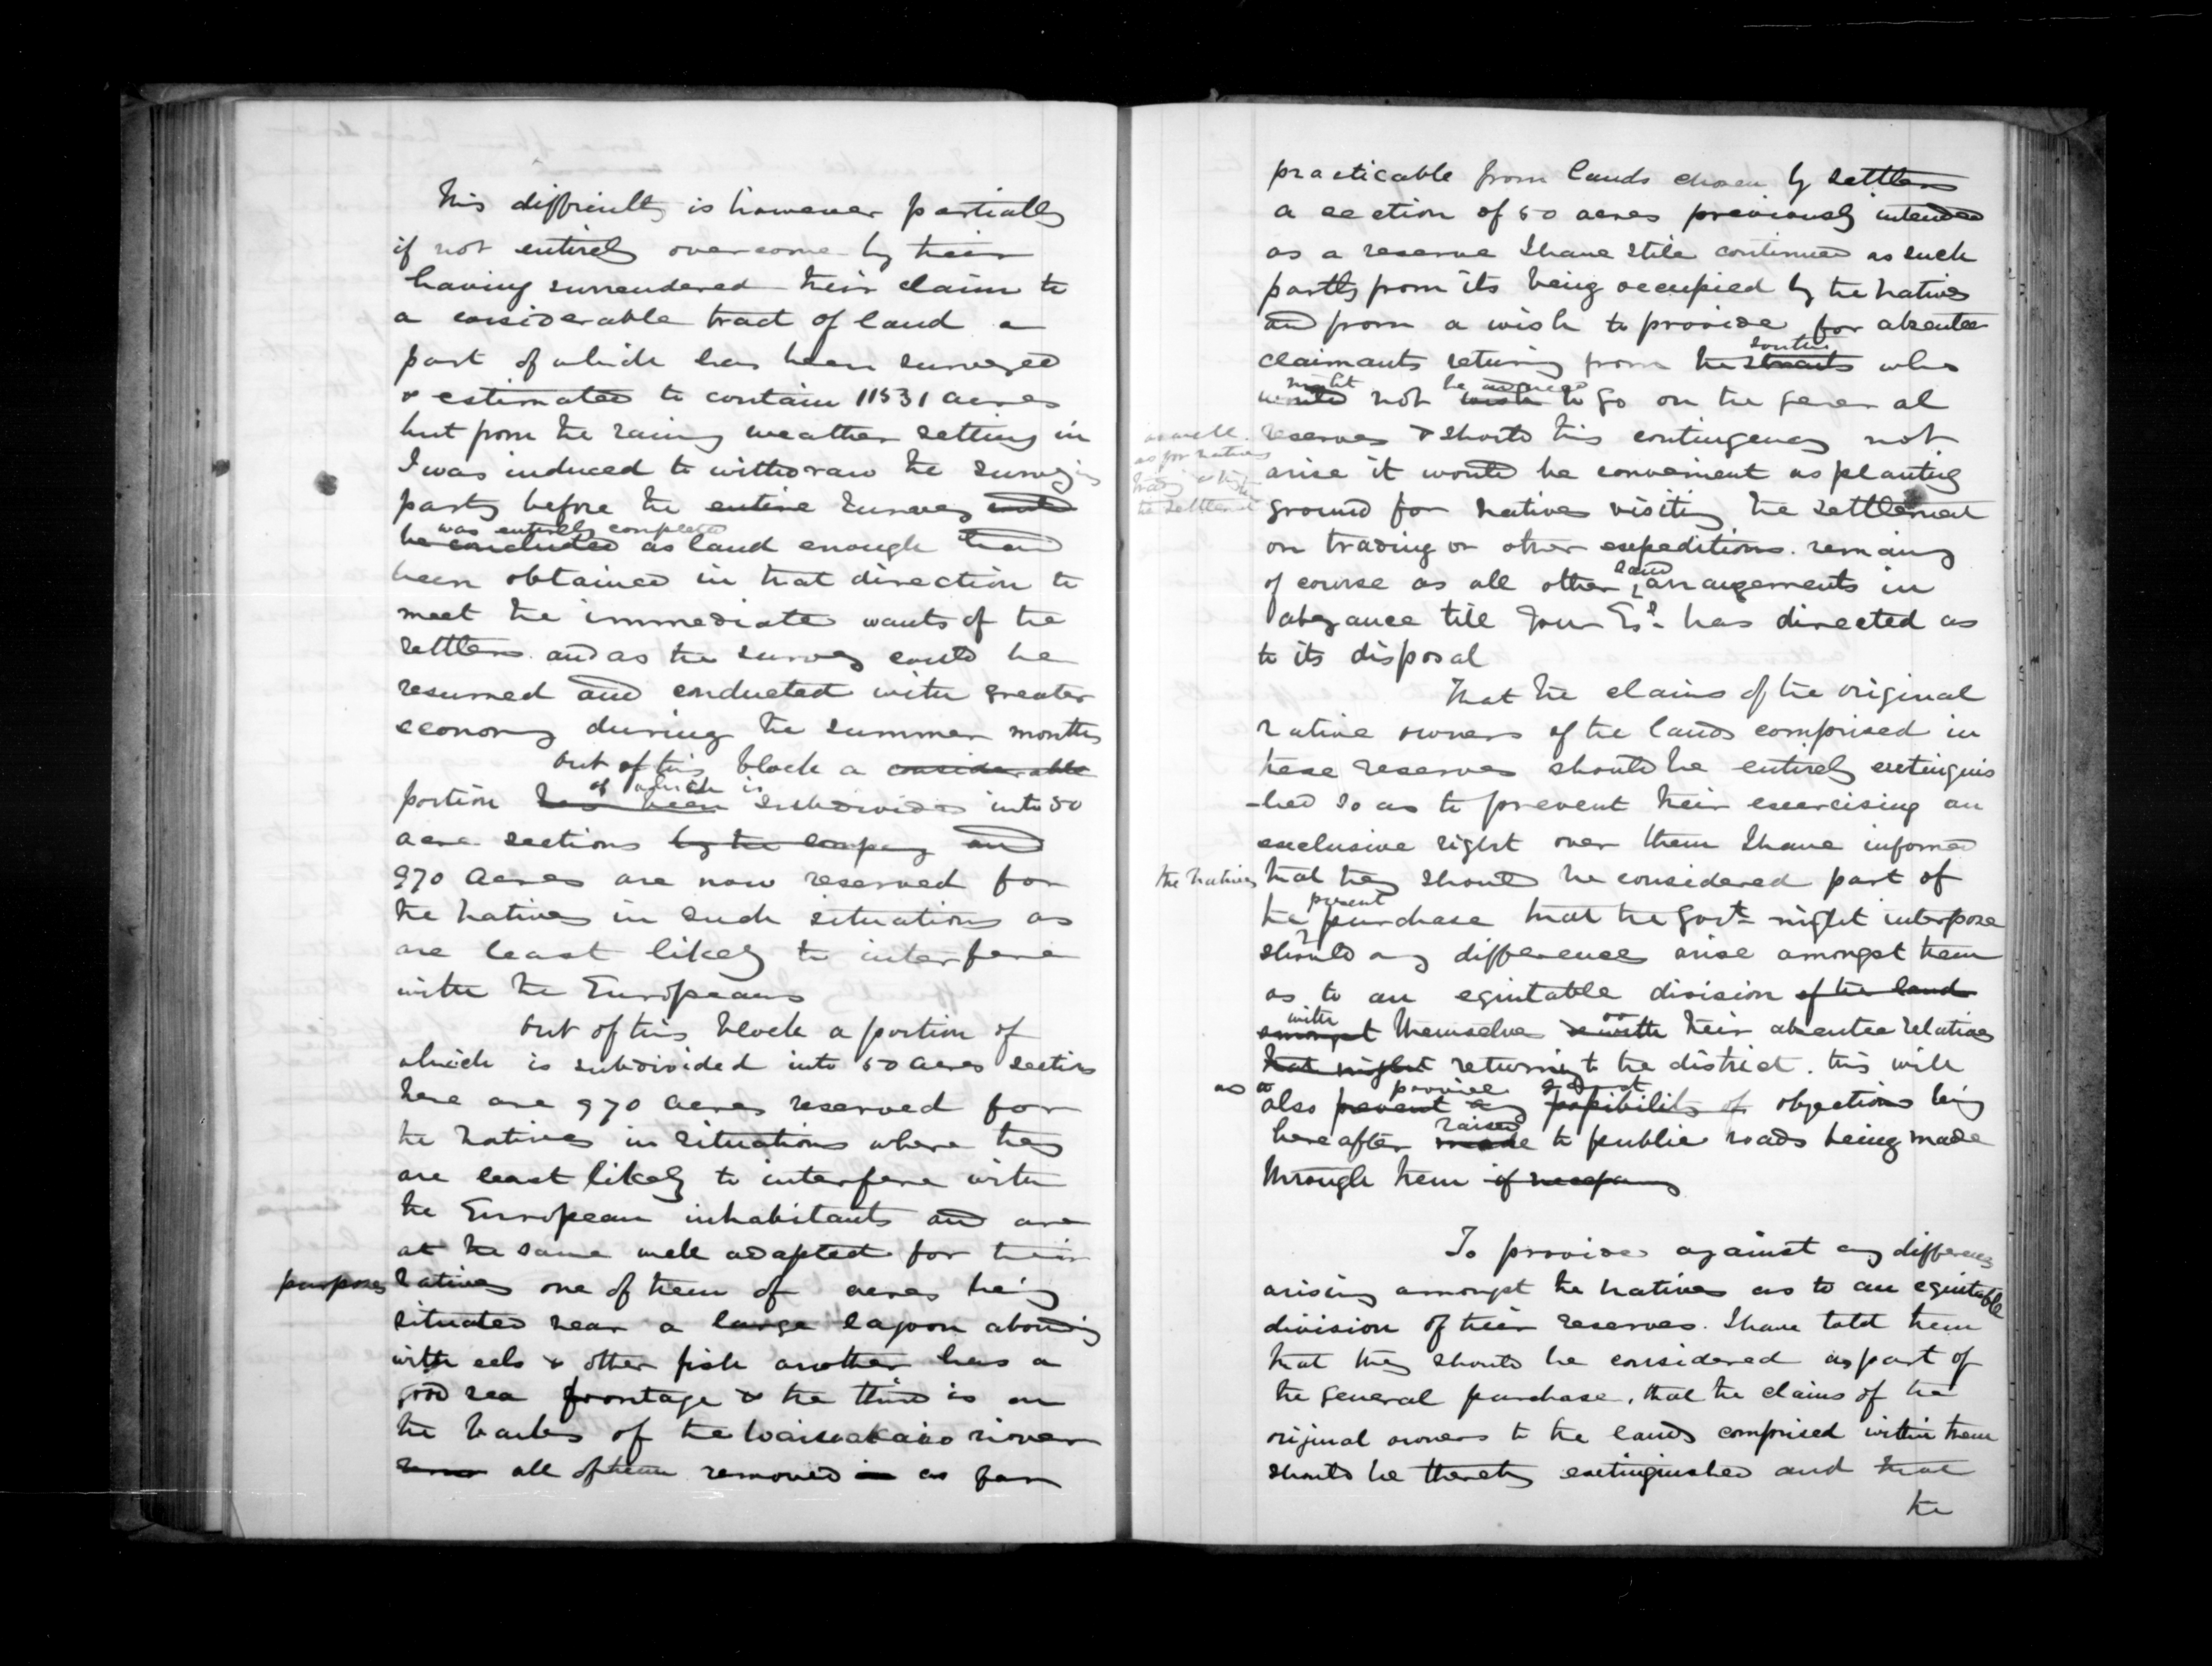 This difficulty is however partially
if not entirely overcome by their
having surrendered their claim to
a considerable tract of land a
part of which has been surveyed
& estimated to contain 11531 acres
but from the rainy weather setting in
I was induced to withdraw the surveying
party before the entire survey
was entirely completed
be concluded as land enough had
been obtained in that direction to
meet the immediate wants of the
settlers and as the survey could be
resumed and conducted with greater
economy during the summer months
Out of this block a considerable
of which is
portion has been subdivided into 50
acre sections by the company and
970 acres are now reserved for
the natives in such situations as
are least likely to interfere
with the Europeans
Out of this block a portion of
which is subdivided into 50 acres sections
there are 970 acres reserved for
the natives in situations where they
are least likely to interfere with
the European inhabitants and are
at the same well adapted for their
purposes
natives one of them of acres being
situated near a large lagoon abounding
with eels & other fish another has a
good sea frontage & the third is on
the banks of the Waiwakaiho river
all of them removed as far
practicable from lands chosen by settlers
a section of 50 acres previously intended
as a reserve I have still continued as such
partly from its being occupied by the natives
and from a wish to provide for absentee
south
claimants returning from the Straits who
might be
would not wish to go on the general
as well
reserves & should this contingency not
as for natives
arise it would be convenient as planting
the settlement
ground for natives visiting the settlement
on trading or other expeditions. remaing
land
of course as all other arrangements in
abeyance till Your Ex. has directed as
to its disposal
That the claims of the original
native owners of the lands comprised in
these reserves should be entirely extinguis
-hed so as to prevent their exercising an
exclusive right over them I have informed
the natives that they should be considered part of
present
the purchase that the Govt. might interpose
should any differences arise amongst them
as to an equitable division of the land
with or
amongst themselves & with their absentee relatives
that might returning to the district. this will
as provide against
also prevent any possibility of objections being
raised
hereafter made to public roads being made
through them if necessary
To provide against any differences
arising amongst the natives as to an equitable
division of their reserves. I have told them
that they should be considered as part of
the general purchase, that the claims of the
original owners to the lands comprised within them
should be thereby extinguished and that
the